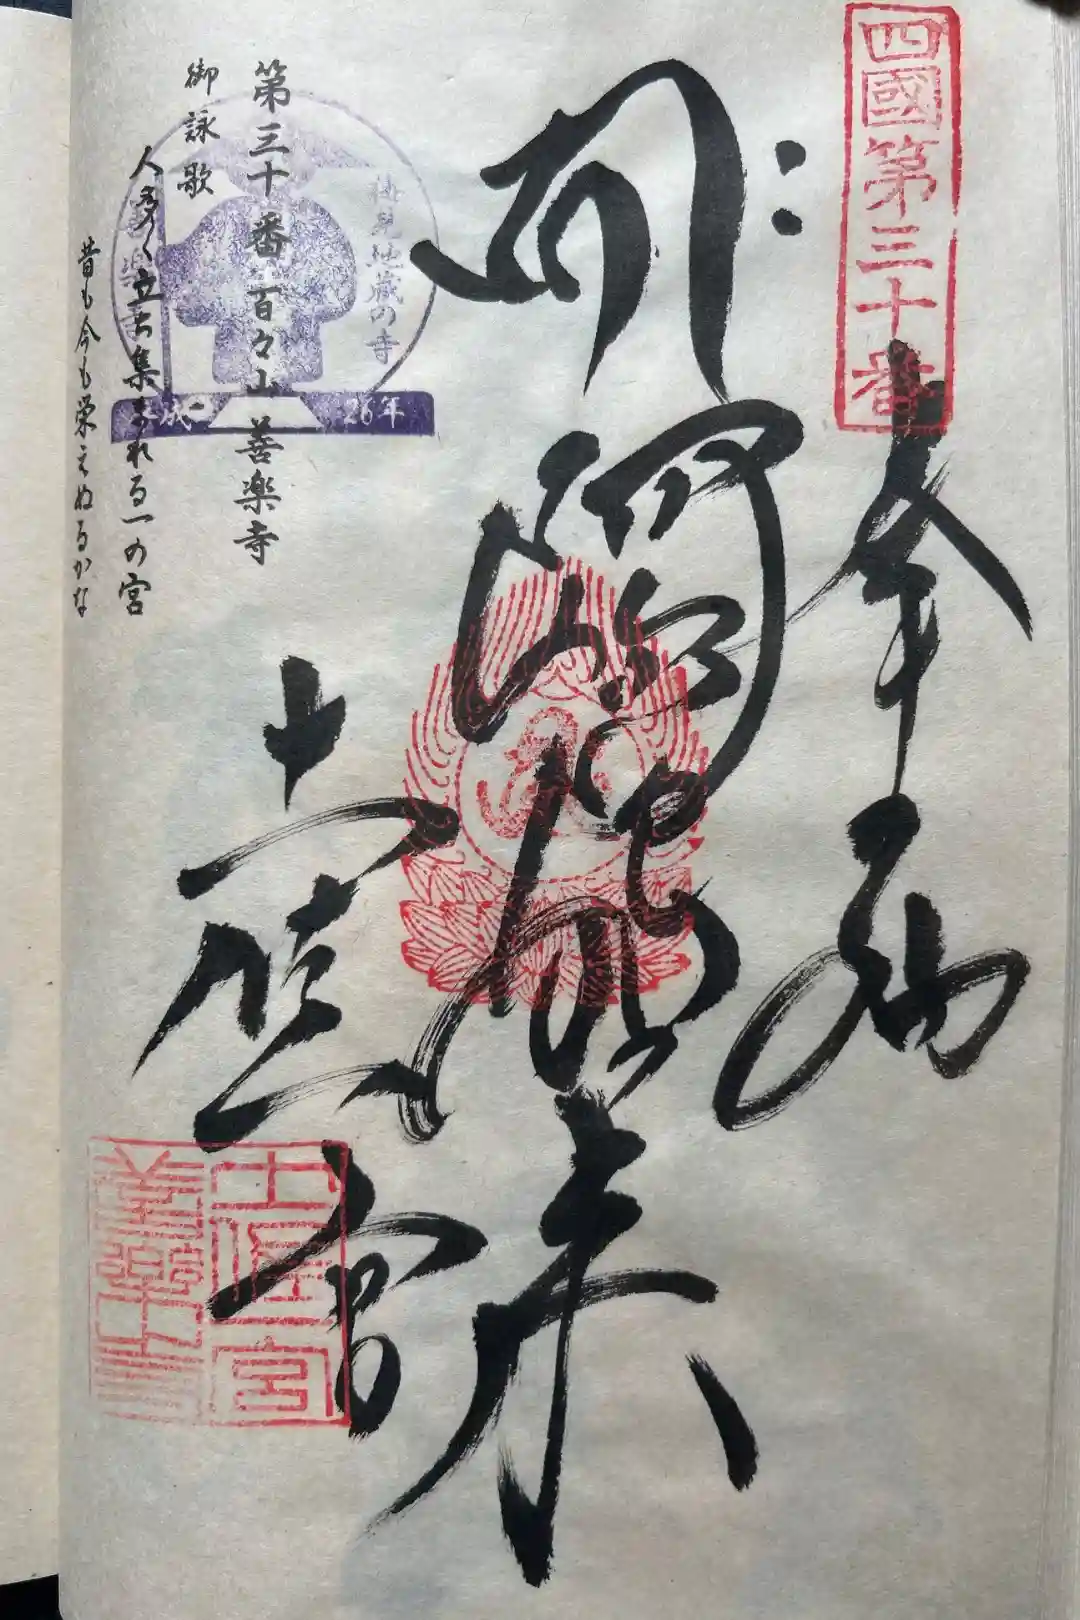 四國第三十番
奉納
阿弥陀如来
土佐一宮
土佐一宮
善樂寺
梅見地蔵の寺
平成
26年
第三十番 百々山 善楽寺
御詠歌
人多く立ち集まれる一の宮
昔も今も栄えぬるかな